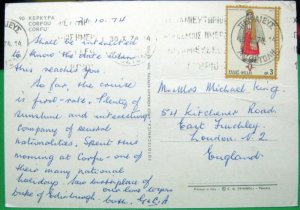 90 ΚΕΡΚΥΡΑ
CORFOU
CORFU
10.74
Shall be interested
to know the date when
this reached you.
So far, the cruise
is first-rate. Plenty of
sunshine and interesting
company of several
nationalities. Spent this
morning at Corfu - one of
their many national
holidays. Saw birthplace of
Duke of Edinburgh.
our love to you
Mr & Mrs Michael King
54 Kirchener Road
East Finchley
London. N. 2
England.